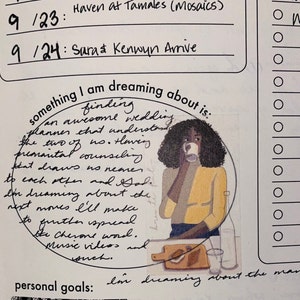 Haven at Tamales (Mosaics)
9 /23:
9 /24: Sara & Kenwyn Arrive
something I am dreaming about is:
finding
an awesome wedding
planner that understands
the two of us. Having
premarital counseling
that draws us nearer
to each other and God.
I'm dreaming about the
next moves I'll make
to further spread
word.
Music videos and
such.
I'm dreaming about the
personal goals: